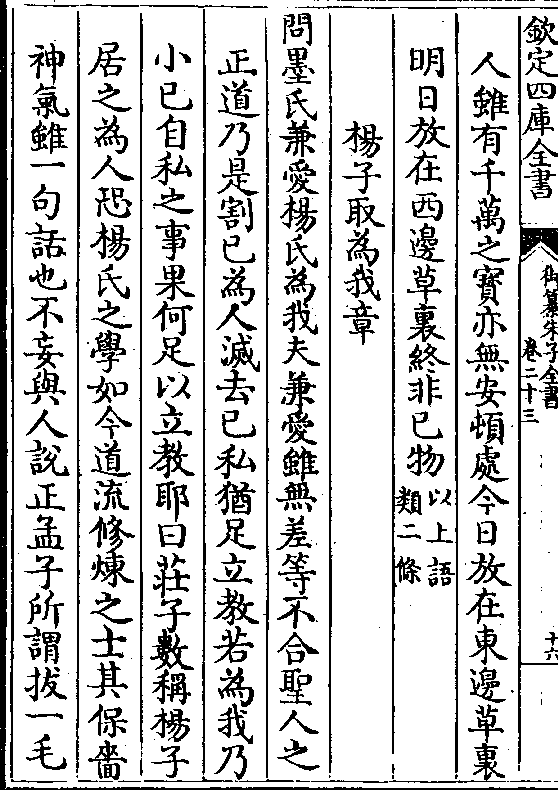 欽定四庫全書
御纂朱子全書
卷二十三
十六
人雖有千萬之寳亦無安頓處今日放在東邊草裏
明日放在西邊草裏終非已物以上語類二條
楊子取為我章
問墨氏兼愛楊氏為我夫兼愛雖無差等不合聖人之
正道乃是割已為人滅去已私猶足立教若為我乃
小已自私之事果何足以立教耶曰莊子數稱楊子
居之為人恐楊氏之學如今道流修煉之士其保嗇
神氣雖一句話也不妄與人説正孟子所謂拔一毛